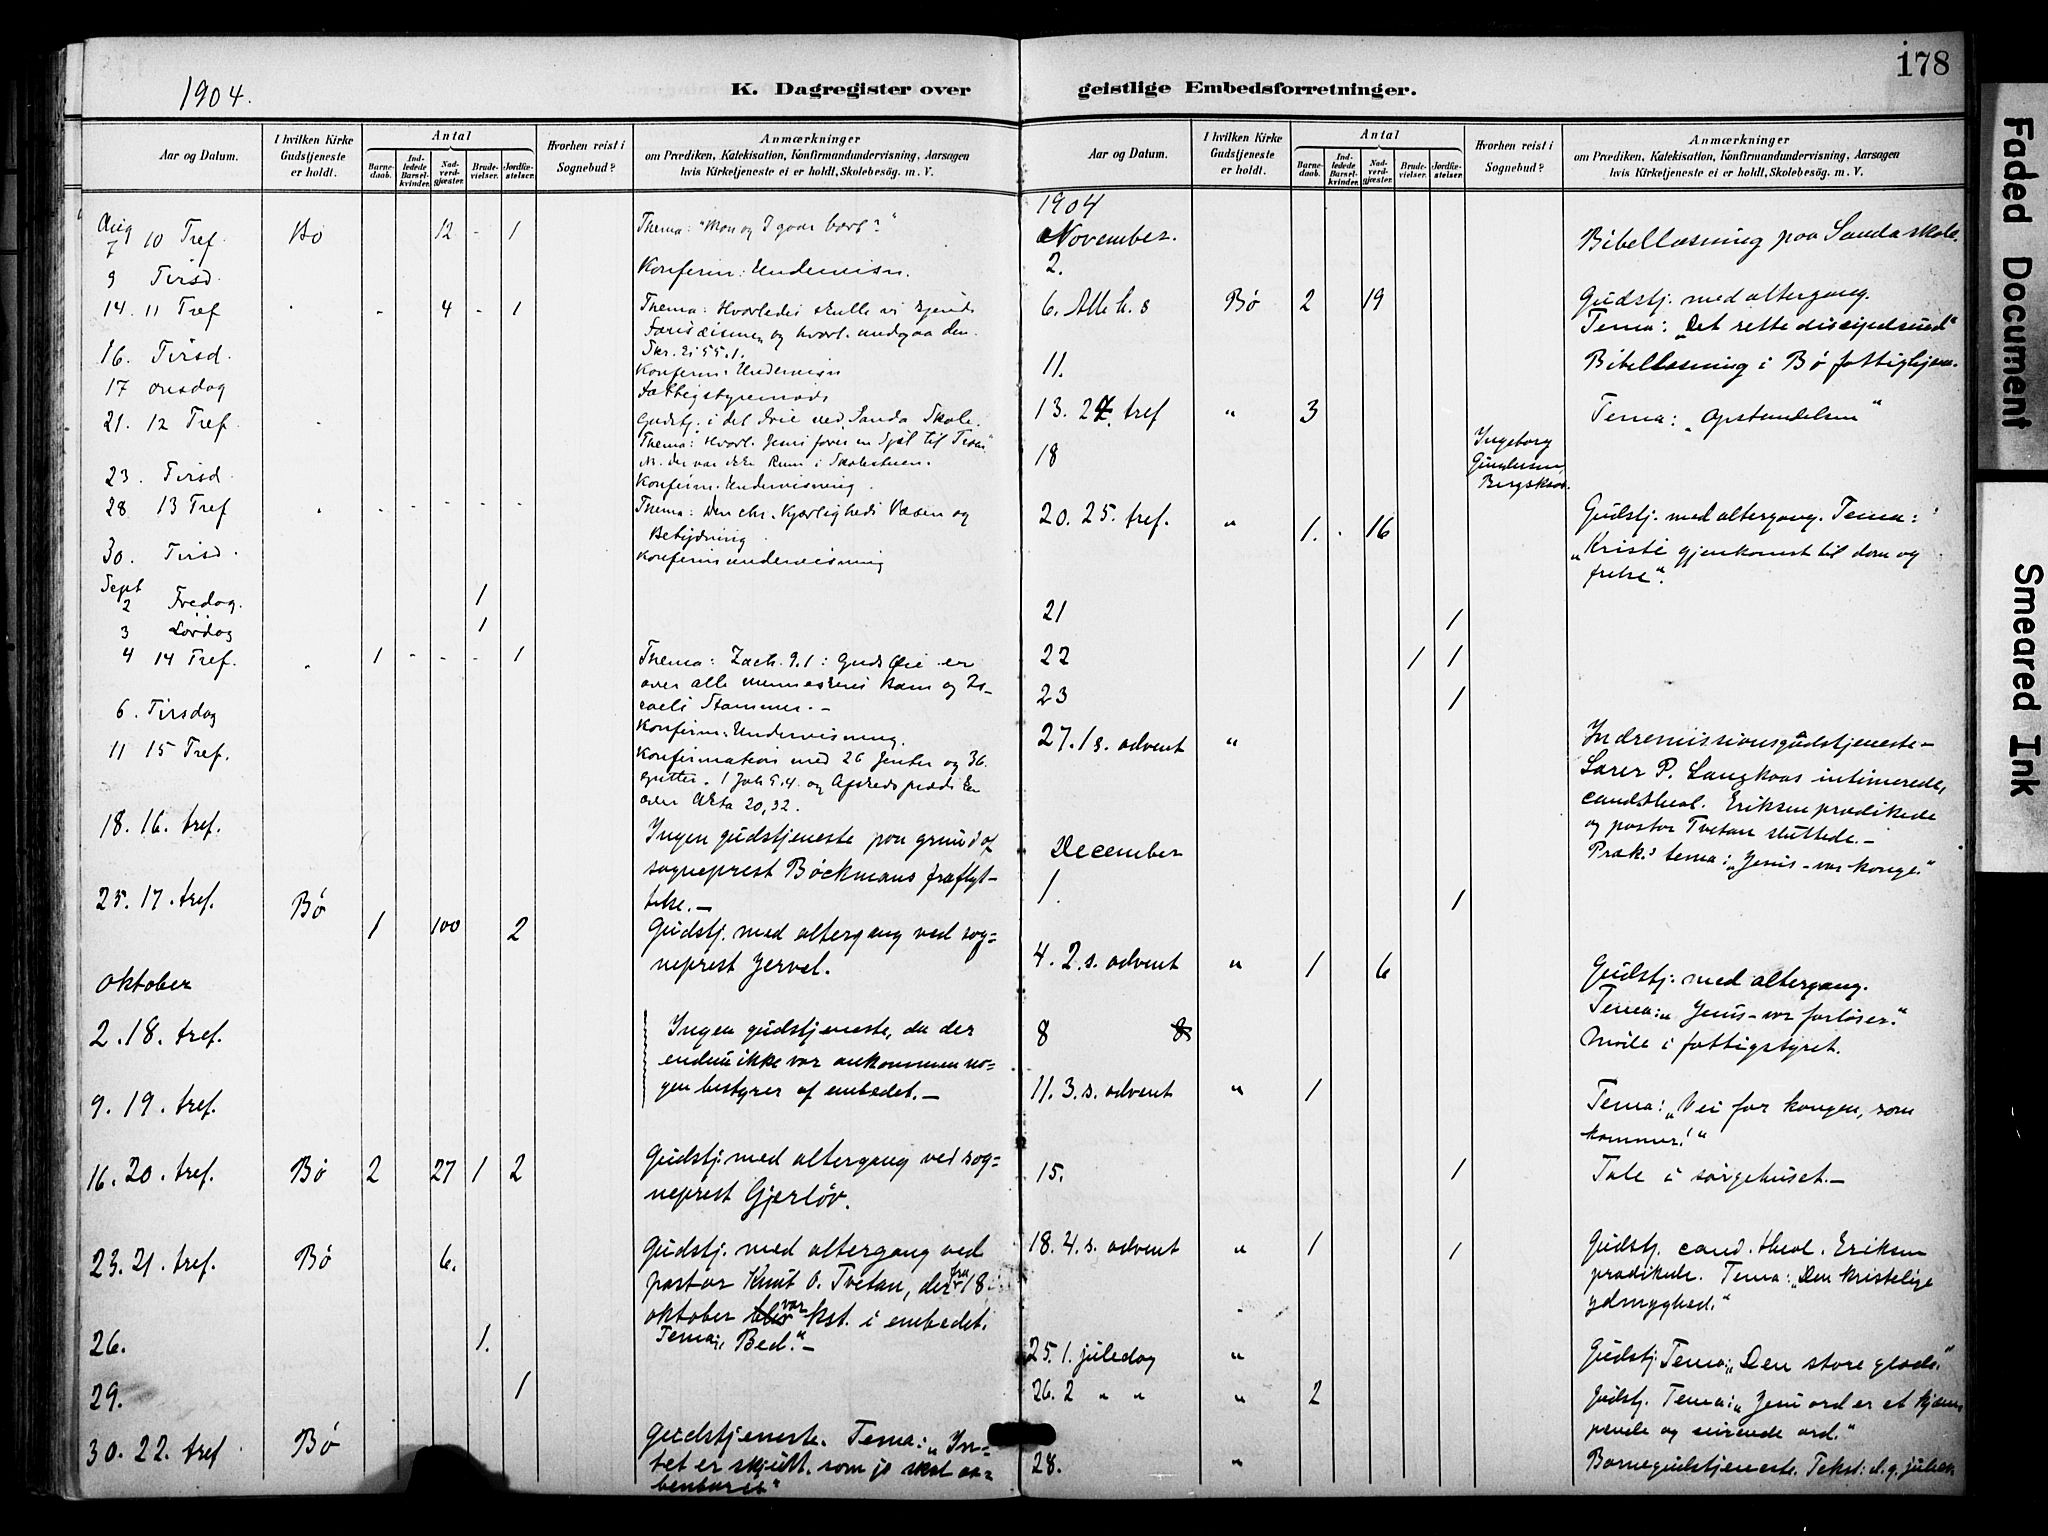 178
1904.
K. Dagregister over
Aar og Datum.
I hvilken Kirke Gudstjeneste er holdt.
Antal
Barne-daab.
Ind-ledede Barsel-kvinder.
Nad-verd-gjæster.
Brude-vielser.
Jordfæ-stelser.
Hvorhen reist i Sognebud?
Anmærkninger
om Prædiken, Katekisation, Konfirmandundervisning, Aarsagen
hvis Kirketjeneste ei er holdt, Skolebesøg. m. V.
Aug
7 10 Tref. Bø 12 - 1 Thema: "Mon og I gaar bort?"
9 Tirsd. Konfirm: Undervisn.
14. 11 Tref - 4 - 1 Thema: Hvorledes skulle vi kjende
og hvorl. undgaa den.
16. Tirsd. Konfirm. Undervisn
17 onsdag Fattigstyremøde
21. 12 Tref. Gudstj. i det Frie ved Sanda Skole.
Thema: Hvorl. Jesus fører en Sjæl til Troen"
N. der var ikke Rum i Skolestuen.
23. Tirsd. Konfirm. Undervisning.
28 13 Tref - - - - - Thema: Den chr. Kjærligheds Væsen og
Betydning
30. Tirsd. Konfirmundervisning
Sept
2 Fredag. 1
3 Lørdag 1
4 14 Tref. 1 - - - 1 Thema: Zach. 9.1: Guds Øie er
over alle menneskenes Børn og Is-
raels Stammer. -
6. Tirsdag Konfirm. Undervisning.
11 15 Tref. Konfirmation med 26 Jenter og 36
gutter. 1 Joh 5.4. og Afskedspræd
over Akta 20,32.
18. 16. tref. Ingen gudstjeneste paa grund af
sogneprest Bøckmans fraflyt-
telse. -
25. 17. tref. Bø 1 100 2 Gudstj. med altergang ved sog=
neprest Jervel.
Oktober
2. 18. tref. Ingen gudstjeneste, da der
endnu ikke var ankommen no-
gen bestyrer af embedet. -
9. 19. tref.
16. 20. tref. Bø 2 27 1 2 Gudstj. med altergang ved sog=
neprest Gjerløv.
23. 21. tref. Bø 6. Gudstj. med altergang ved
pastor Knut O. Tvetan, der fra 18.
oktober blev var kst. i embedet.
Tema: "Bed." -
26. 1.
29. 1
30. 22. tref Bø Gudstjeneste. Tema: "In-
tet er skjult, som jo skal aa=
benbares"
geistlige Embedsforretninger.
Aar og Datum.
I hvilken Kirke Gudstjeneste er holdt.
Antal
Barne-daab.
Ind-ledede Barsel-kvinder.
Nad-verd-gjæster.
Brude-vielser.
Jordfæ-stelser.
Hvorhen reist i Sognebud?
Anmærkninger
om Prædiken, Katekisation, Konfirmandundervisning, Aarsagen
hvis Kirketjeneste ei er holdt, Skolebesøg. m. V.
1904
November.
2. Bibellæsning paa Sanda skole.
6. Alle h. s Bø 2 19 Gudstj. med altergang.
Tema: "Det rette disciplesind"
11. Bibellæsning i Bø fattighjem.
13. 24. tref " 3 Tema: "Opstandelsen"
18 Ingeborg
Gundersen,
20. 25. tref. " 1. - 16 Gudstj. med altergang. Tema:
"Kristi gjenkomst til dom og
frelse".
21 1
22 1 1
23 1
27. 1 s. advent " Indremissionsgudstjeneste -
Lærer P. Langkaas intimerede,
cand. theol. Eriksen prædikede
og pastor Tvetan sluttede. -
Præk.s tema: "Jesus - vor konge."
December
1. 1
4. 2. s. advent " 1 6 Gudstj. med altergang.
Tema: "Jesus - vor forløser."
8 8 Møde i fattigstyret.
11. 3. s. advent " 1 Tema: "Vei for kongen, som
kommer!"
15. 1 Tale i sørgehuset. -
18. 4. s. advent " 1 1 Gudstj. cand. theol. Eriksen
prædikede. Tema: "Den kristelige
ydmyghed."
25. 1. juledag " Gudstj. Tema: "Den store glæde."
26. 2 " " " 2 Gudstj. Tema: "Jesu ord er et kjæm-
pende og seirende ord."
28. " Børnegudstjeneste. Tekst: d. g. julesk
Faded Document
Smeared Ink